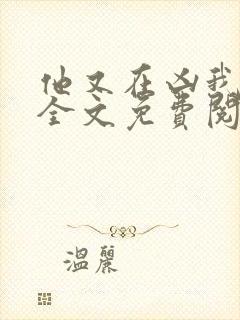 他又在凶我
全文免費閱
溫麗